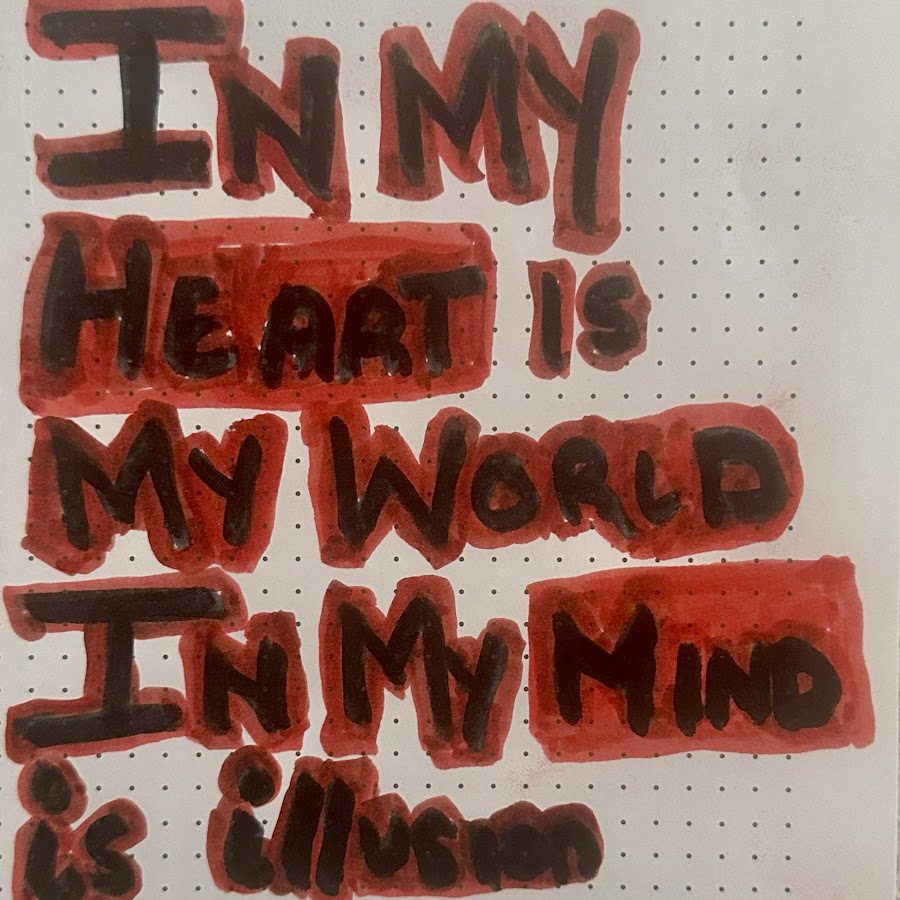 IN MY
HEART IS
MY WORLD
IN MY MIND
is illusion